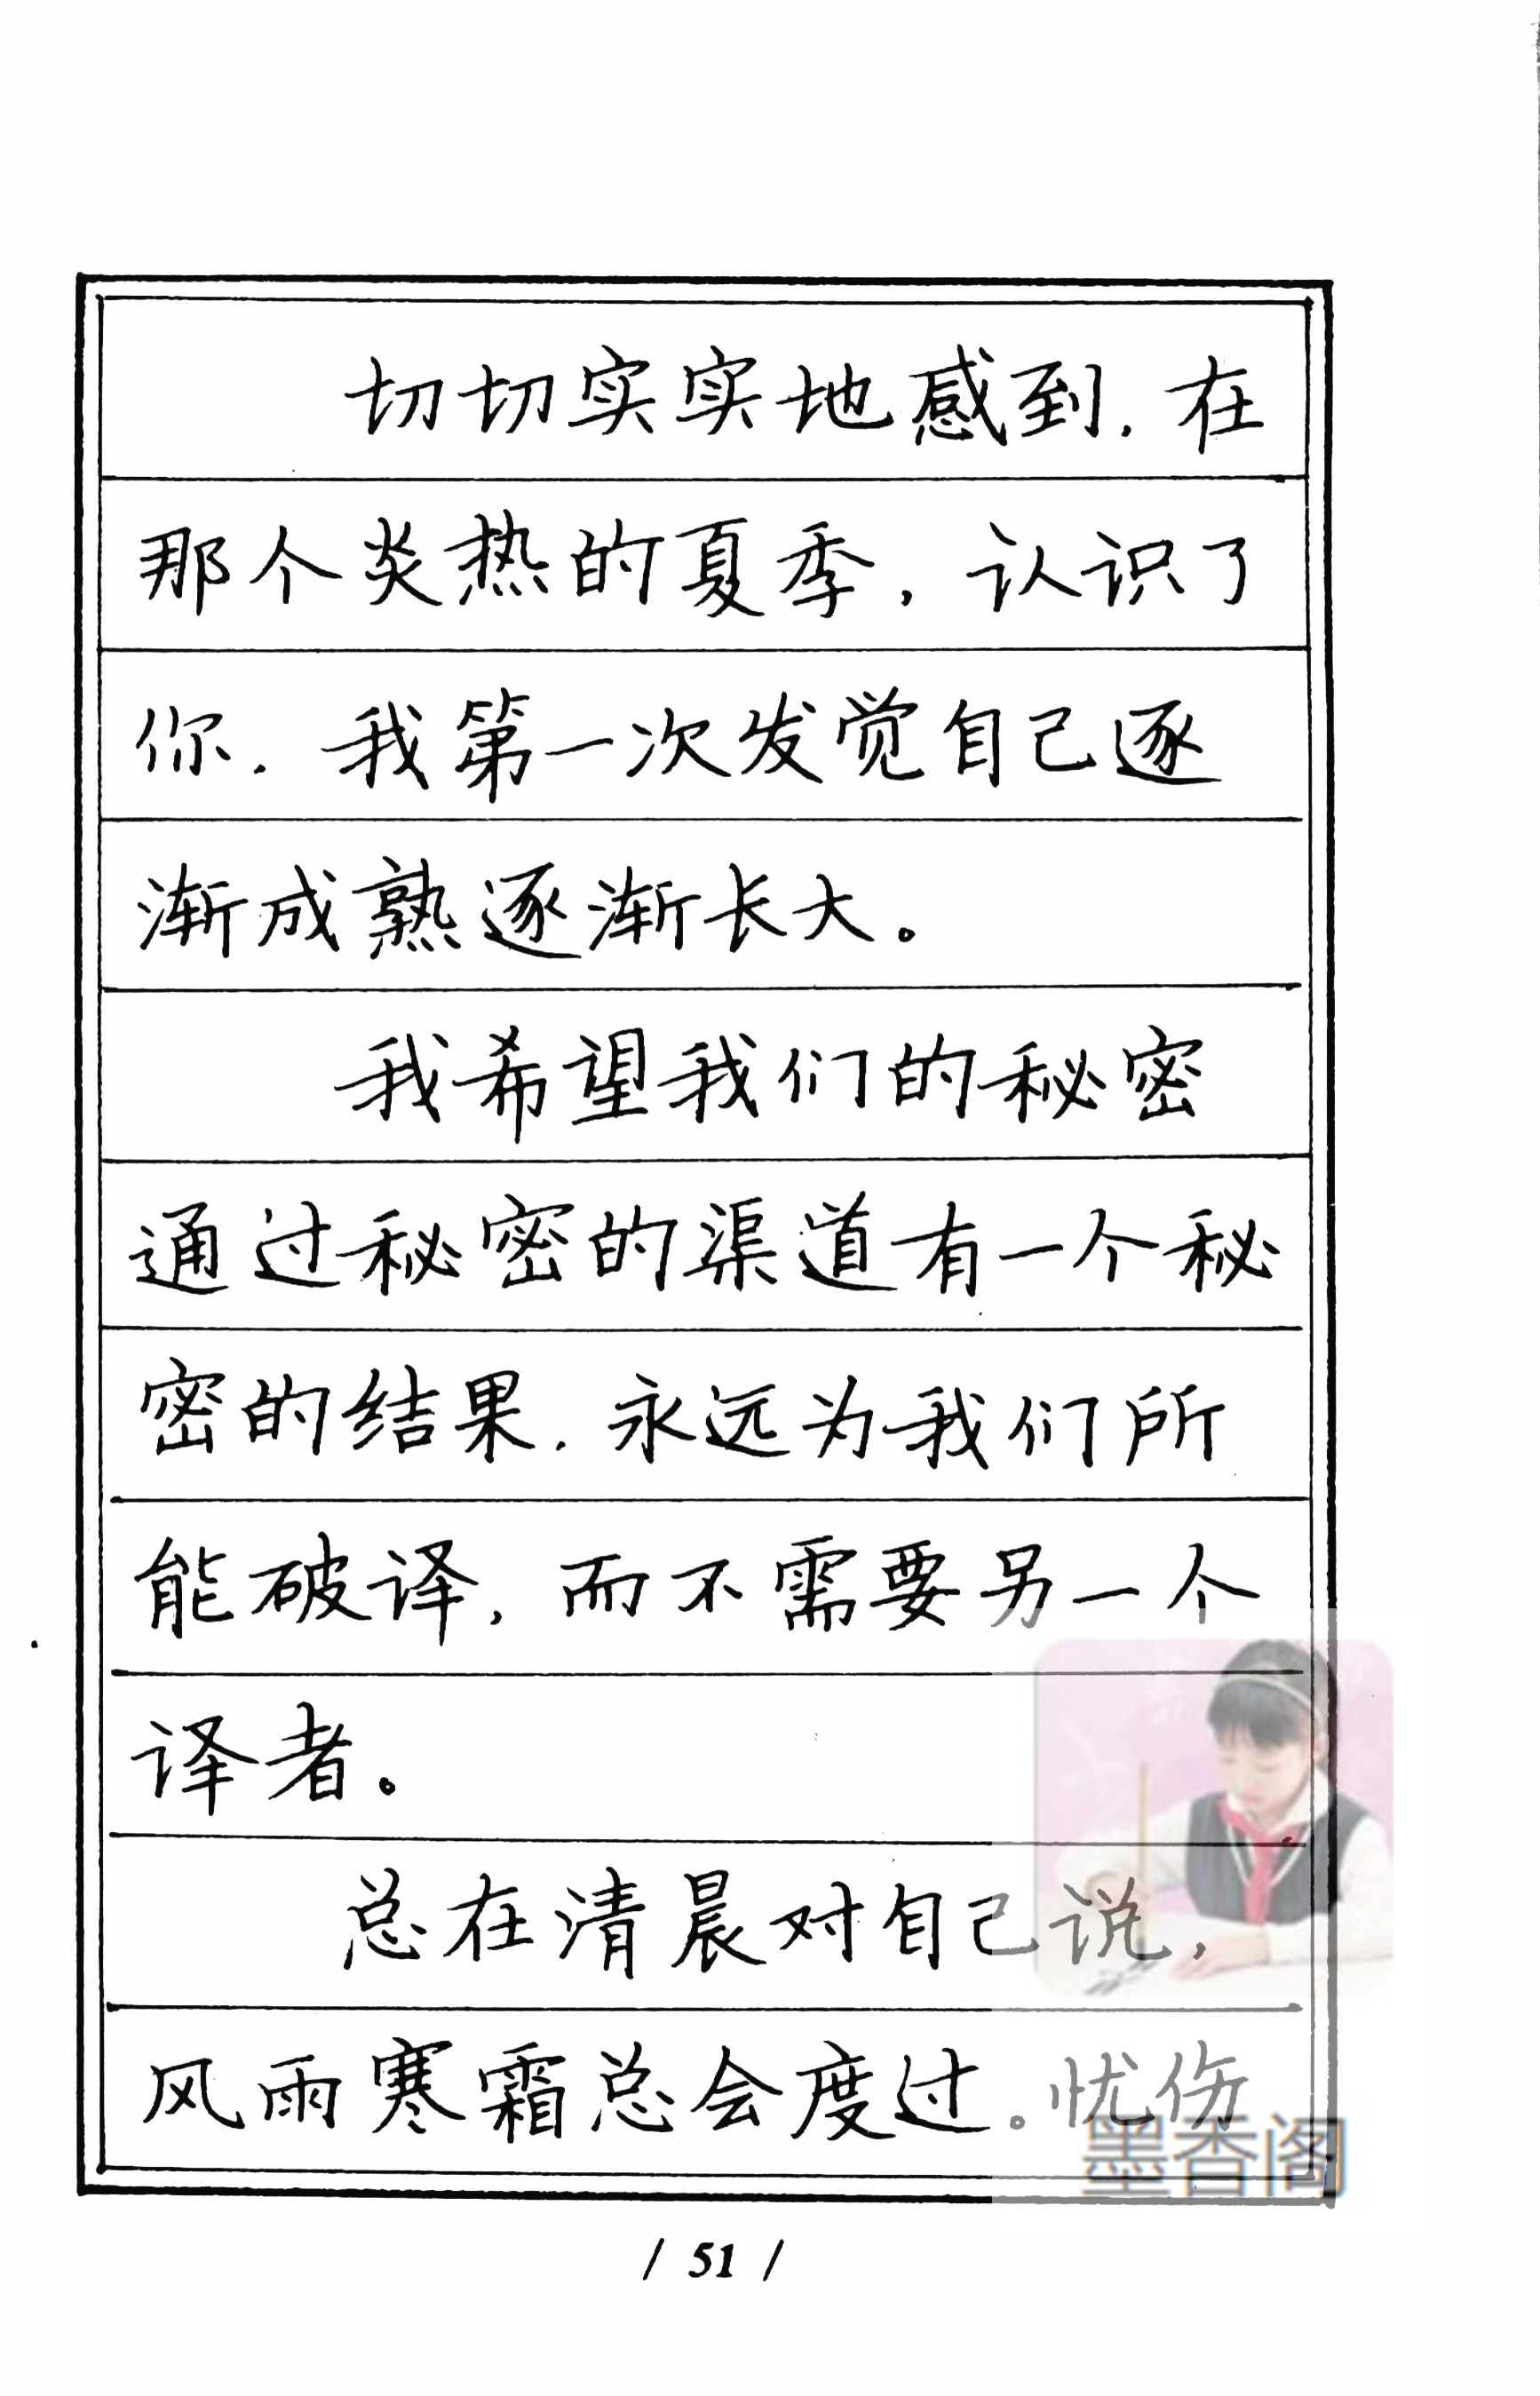 切切实实地感到，在
那个炎热的夏季，认识了
你，我第一次发觉自己逐
渐成熟逐渐长大。
我希望我们的秘密
通过秘密的渠道有一个秘
密的结果，永远为我们所
能破译，而不需要另一个
译者。
总在清晨对自己说，
风雨寒霜总会度过。忧伤
墨香阁
/ 51 /